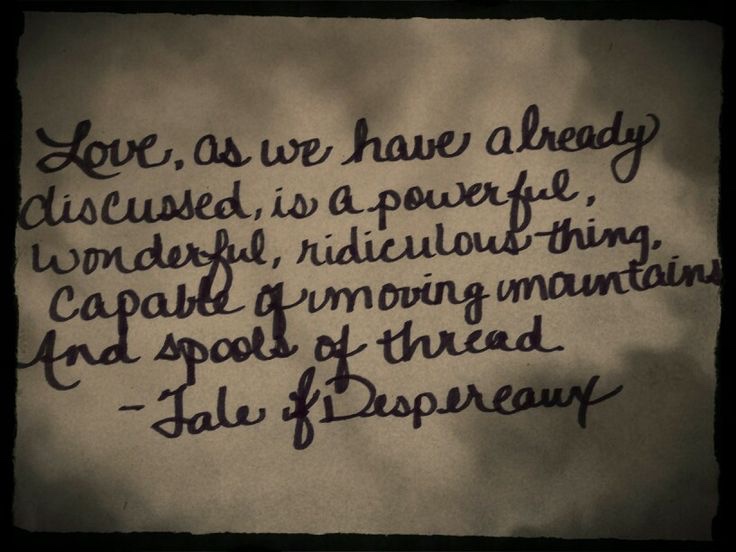 Love, as we have already
discussed, is a powerful,
wonderful, ridiculous thing,
capable of moving mountains
And spools of thread.
- Tale of Despereaux